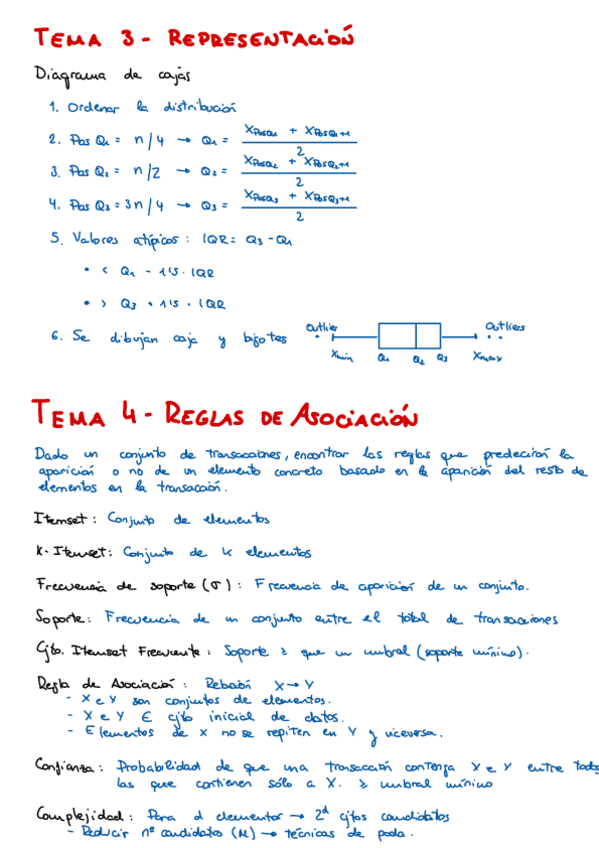 TEMA 3 - REPRESENTACIÓN
Diagrama de cajas
1. Ordenar la distribución
2. Pos Q₁ = n/4 → Q₁ = (X_PosQ₁ + X_PosQ₁+1) / 2
3. Pos Q₂ = n/2 → Q₂ = (X_PosQ₂ + X_PosQ₂+1) / 2
4. Pos Q₃ = 3n/4 → Q₃ = (X_PosQ₃ + X_PosQ₃+1) / 2
5. Valores atípicos: IQR = Q₃ - Q₁
• < Q₁ - 1'5 · IQR
• > Q₃ + 1'5 · IQR
6. Se dibujan caja y bigotes
Outlier Outliers
Xmin Q₁ Q₂ Q₃ Xmax
TEMA 4 - REGLAS DE ASOCIACIÓN
Dado un conjunto de transacciones, encontrar las reglas que predecirán la
aparición o no de un elemento concreto basado en la aparición del resto de
elementos en la transacción.
Itemset: Conjunto de elementos
K-Itemset: Conjunto de k elementos
Frecuencia de soporte (σ): Frecuencia de aparición de un conjunto.
Soporte: Frecuencia de un conjunto entre el total de transacciones
Cjto. Itemset Frecuente: Soporte ≥ que un umbral (soporte mínimo).
Regla de Asociación: X → Y
- X e Y son conjuntos de elementos.
- X e Y ∈ cjto inicial de datos.
- Elementos de X no se repiten en Y y viceversa.
Confianza: Probabilidad de que una transacción contenga X e Y entre todas
las que contienen sólo a X. ≥ umbral mínimo
Complejidad: Para d elementos → 2ᵈ cjtos candidatos
- Reducir nº candidatos (M) → técnicas de poda.